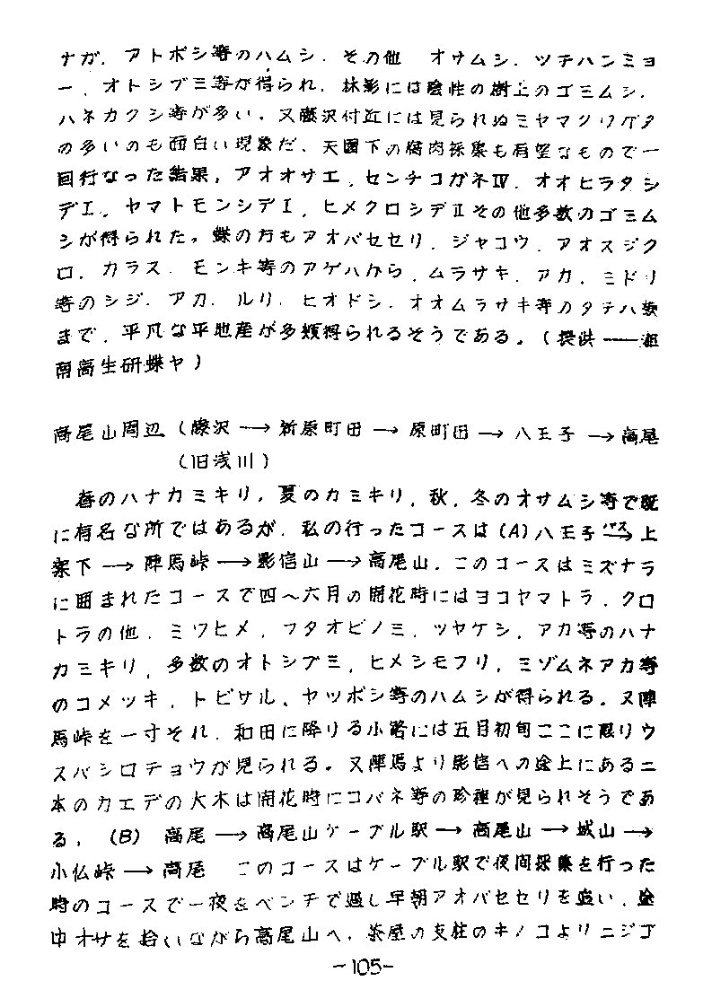 ナガ．アトボシ等のハムシ．その他　オサムシ．ツチハンミョ
ー．オトシブミ等が得られ．林影には陰性の樹上のゴミムシ．
ハネカクシ等が多い．又藤沢付近には見られぬミヤマクワガタ
の多いのも面白い現象だ．天園下の腐肉採集も有望なもので一
回行なった結果，アオオサエ，センチコガネⅣ．オオヒラタシ
デⅠ．ヤマトモンシデⅠ．ヒメクロシデⅡその他多数のゴミム
シが得られた。蝶の方もアオバセセリ．ジャコウ．アオスジク
ロ．カラス．モンキ等のアゲハから，ムラサキ．アカ．ミドリ
等のシジ．アカ．ルリ．ヒオドシ．オオムラサキ等のタテハ類
まで．平凡な平地産が多類得られるそうである。(提供——湘
南高生研蝶ヤ)
高尾山周辺 (藤沢→新原町田→原町田→八王子→高尾
(旧浅川)
春のハナカミキリ，夏のカミキリ，秋，冬のオサムシ等で既
に有名な所ではあるが．私の行ったコースは(A)八王子バス→上
案下→陣馬峠→影信山→高尾山．このコースはミズナラ
に囲まれたコースで四〜六月の開花時にはヨコヤマトラ．クロ
トラの他．ミワヒメ．フタオビノミ．ツヤケシ．アカ等のハナ
カミキリ，多数のオトシブミ，ヒメシモフリ，ミゾムネアカ等
のコメツキ．トビサル、ヤツボシ等のハムシが得られる。又陣
馬峠を一寸それ．和田に降りる小路には五月初旬ここに限りウ
スバシロチョウが見られる。又陣馬より影信への途上にある二
本のカエデの大木は開花時にコバネ等の珍種が見られそうであ
る．(B) 高尾→高尾山ケーブル駅→高尾山→城山→
小仏峠→高尾　このコースはケーブル駅で夜間採集を行った
時のコースで一夜をベンチで過し早朝アオバセセリを追い．途
中オサを拾いながら高尾山へ．茶屋の支柱のキノコよりニジゴ
-105-